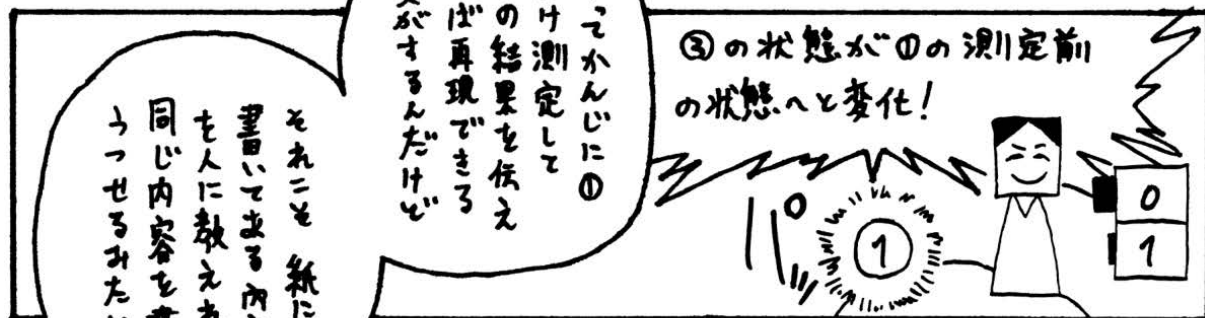 ③の状態が①の測定前
の状態へと変化！
パッ
①
0
1
ってかんじに①
け測定して
の結果を伝え
ば再現できる
がするんだけど
それこそ 紙に
書いてある内
を人に教え
同じ内容を
うつせるみた